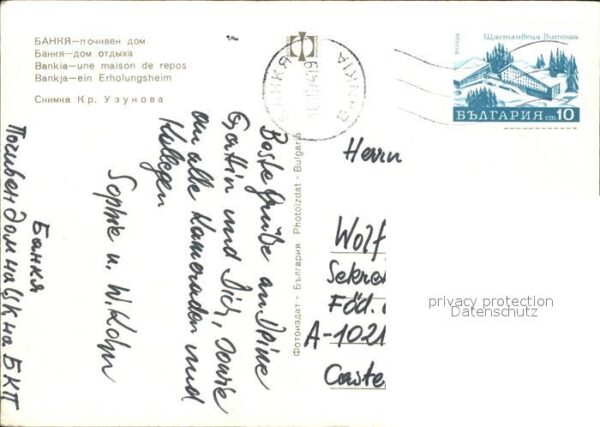 БАНКЯ—почивен дом
Банкя—дом отдыха
Bankia—une maison de repos
Bankja—ein Erholungsheim
Снимка Кр. Узунова
Beste Grüße an Deine
Gattin und Dich, sowie
an alle Kameraden und
Kollegen
Sophie u. W. Kohn
Банкя
Почивен дом на ЦК на БКП
Фотоиздат - България Photoizdat - Bulgaria
BANKIA
БАНКЯ
поща
Щастливеца Витоша
БЪЛГАРИЯ ст. 10
Herrn
Wolf
Sekre
Föd.
A-1021
Caste
privacy protection
Datenschutz